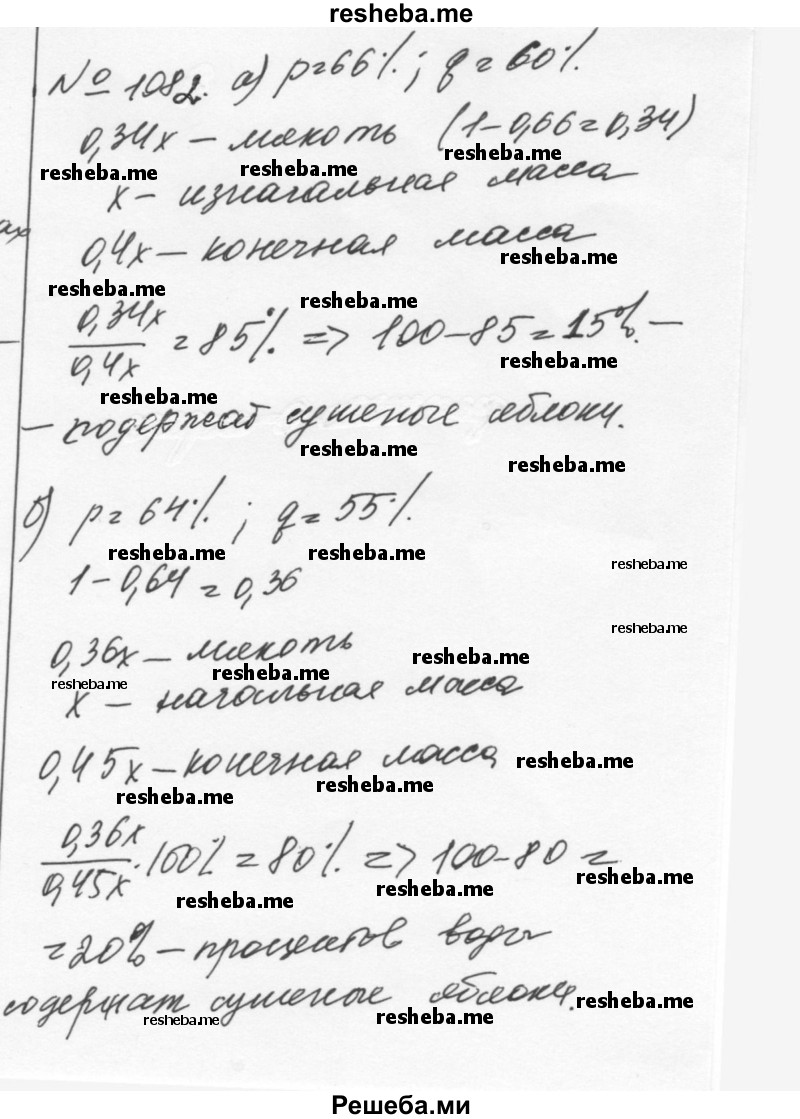 resheba.me
№ 1082. а) p=66%; q=60%.
0,34x — мякоть (1-0,66=0,34)
resheba.me resheba.me resheba.me
x — изначальная масса
0,4x — конечная масса
resheba.me
resheba.me resheba.me
0,34x/0,4x = 85% => 100-85=15% —
resheba.me
resheba.me
— содержат сушеные яблоки.
resheba.me
resheba.me
б) p= 64%; q= 55%.
resheba.me resheba.me resheba.me
1-0,64=0,36
resheba.me
0,36x — мякоть
resheba.me resheba.me resheba.me
x — начальная масса
0,45x — конечная масса
resheba.me
resheba.me resheba.me
0,36x/0,45x ·100% = 80% => 100-80 =
resheba.me resheba.me resheba.me
=20% — процентов воды
содержат сушеные яблоки.
resheba.me resheba.me resheba.me
Решеба.ми